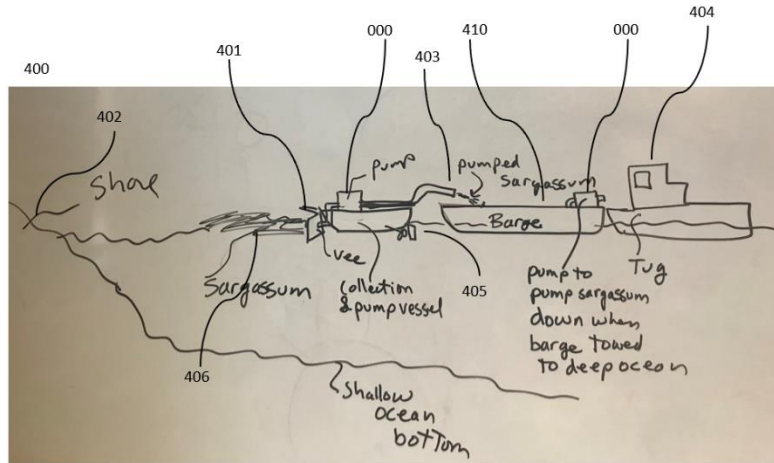 000
410
000
404
401
403
400
402
pump
pumped
Sargassum
Shore
Barge
Vee
Tug
Sargassum
collection
& pump vessel
405
pump to
pump sargassum
down when
barge towed
to deep ocean
406
Shallow
ocean
bottom